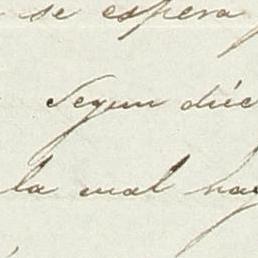 se espera
Segun dice
la cual hay